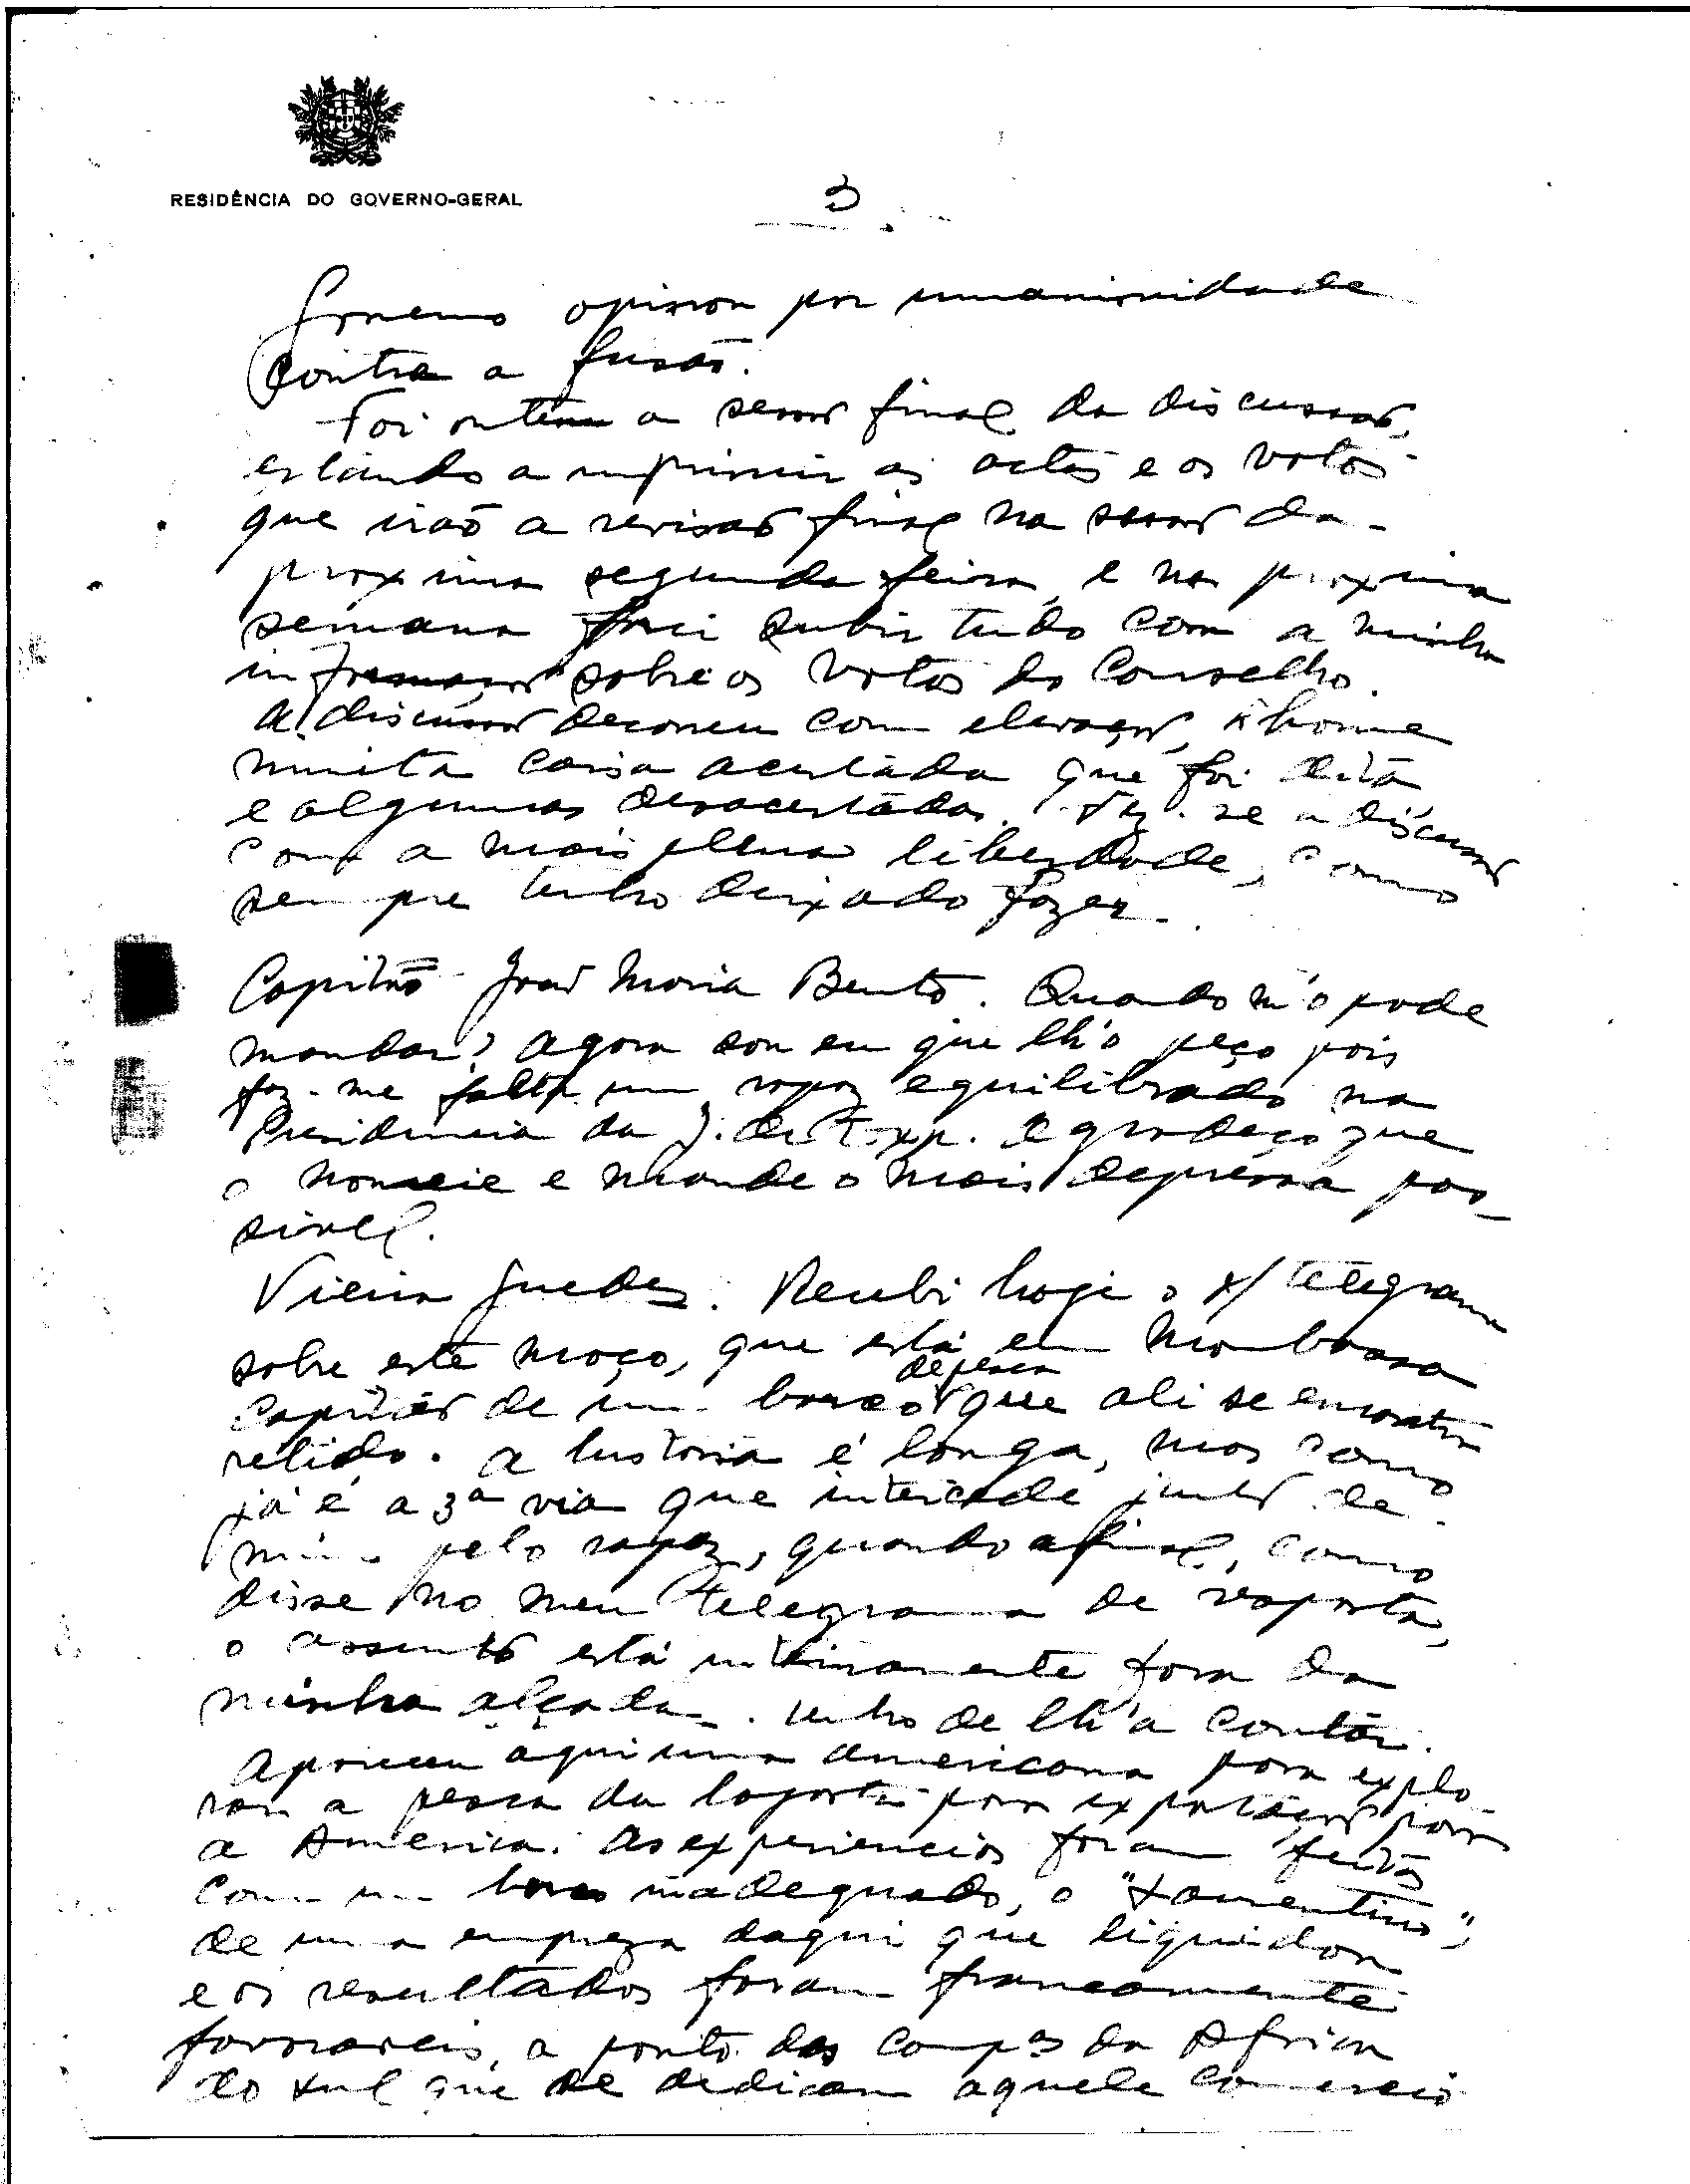 RESIDÊNCIA DO GOVERNO-GERAL
3
Governo opinou por unanimidade
contra a fusão.
Foi ontem a sessão final da discussão,
estando a imprimir as actas e os votos
que irão a revisão final na sessão da
proxima segunda feira, e na proxima
semana farei subir tudo com a minha
informação sobre os votos do Conselho.
A discussão decorreu com elevação, e houve
muita coisa acertada que foi dita
e algumas desacertadas. Fez-se a discussão
com a mais plena liberdade, como
sempre tenho deixado fazer.
Capitão João Maria Bento. Quando m'o pode
mandar? Agora sou eu que lh'o peço pois
faz-me falta um rapaz equilibrado na
Presidencia da J. de Exp. Agradeço que
o nomeie e mande o mais depressa pos-
sivel.
Vieira Guedes. Recebi hoje o s/ telegrama
sobre este moço, que está em Mombassa
de pesca
capitão de um barco que ali se encontra
retido. A historia é longa, mas como
já é a 3ª via que intercede junto de
mim pelo rapaz, quando afinal, como
disse no meu telegrama de resposta,
o assunto está inteiramente fora da
minha alçada. Tenho de lh'a contar.
Apareceu aqui uma americana para explo-
rar a pesca da lagosta para exportação para
a America. As experiencias foram feitas
com um barco inadequado, o
de uma empreza daqui que liquidou
e os resultados foram francamente
favoraveis, a ponto das comp.as da Africa
do Sul que se dedicam aquele comercio